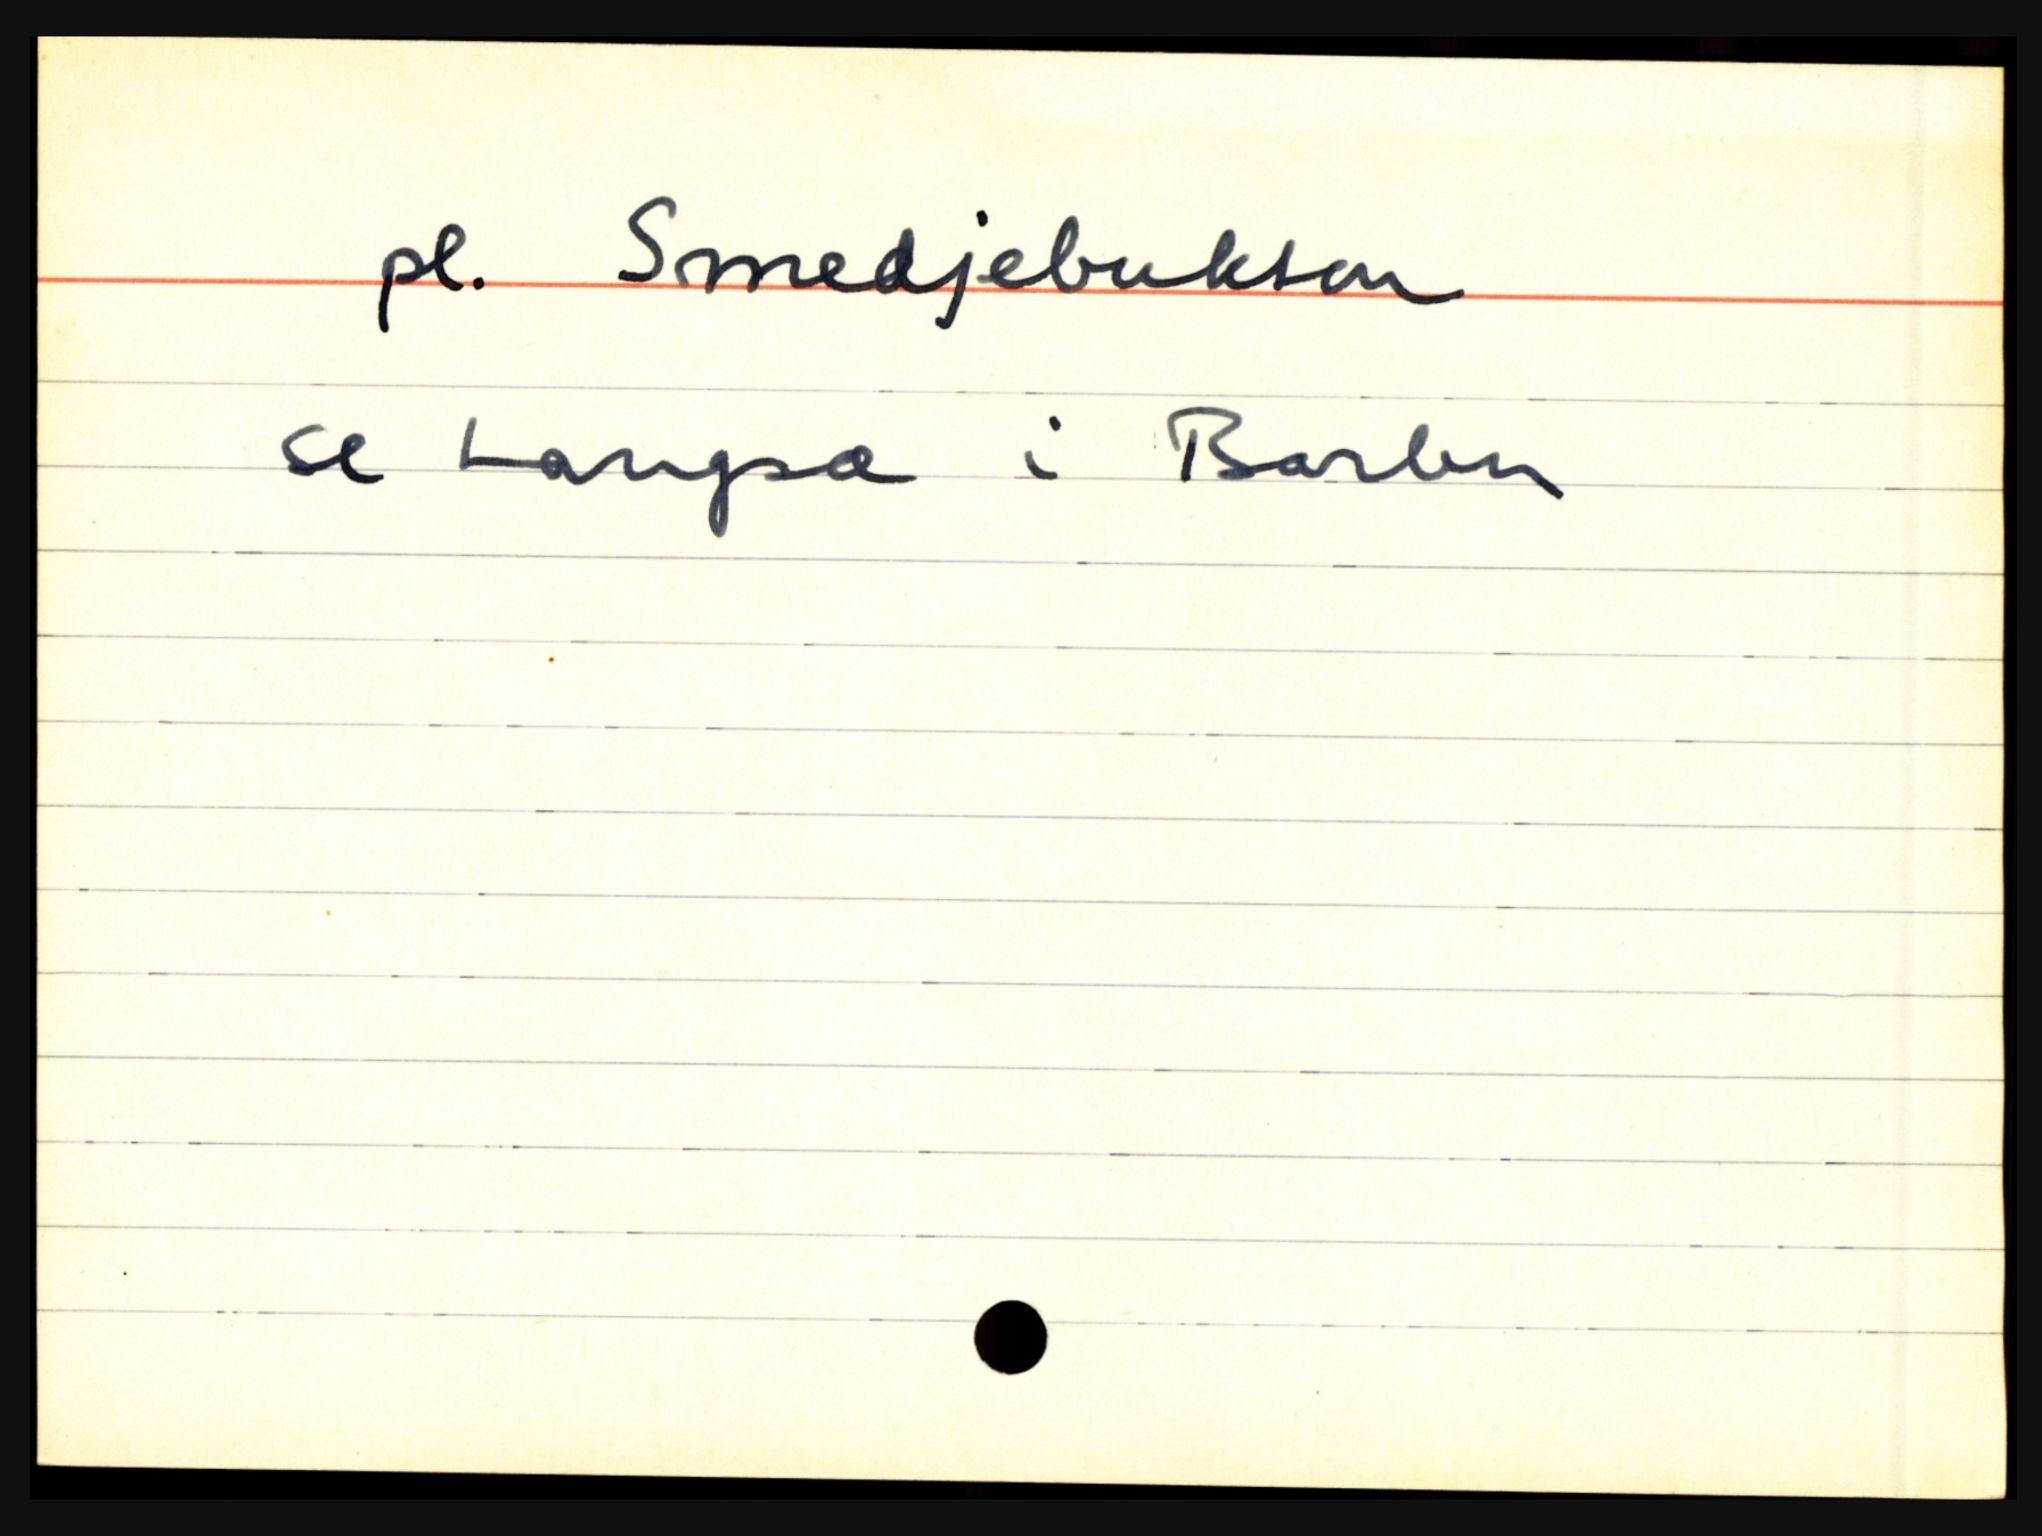 pl. Smedjebuktson
se Langsæ i Barbu